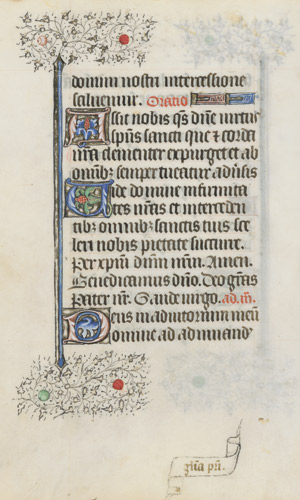 domini nostri intercessione
salvemur. Oratio
Assit nobis qs dne virtus
spūs sancti que & corda
nra clementer expurget et ab
omnibz semper tueatur adusis
Vide domine infirmita
tes nras et interceden
tibz omnibz sanctis tuis sce
leri nobis pietate succurre.
Per xpm dnm nrm. Amen.
Benedicamus dno. Deo gras
Pater nr. Gaude virgo. ad .iii.
Deus in adiutorium meū
Domine ad adiuuandū